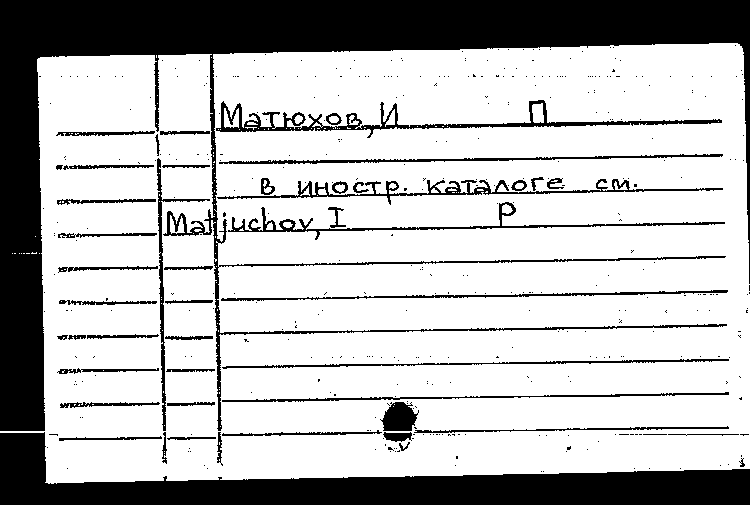 Матюхов, И П
в иностр. каталоге см.
Matjuchov, I P